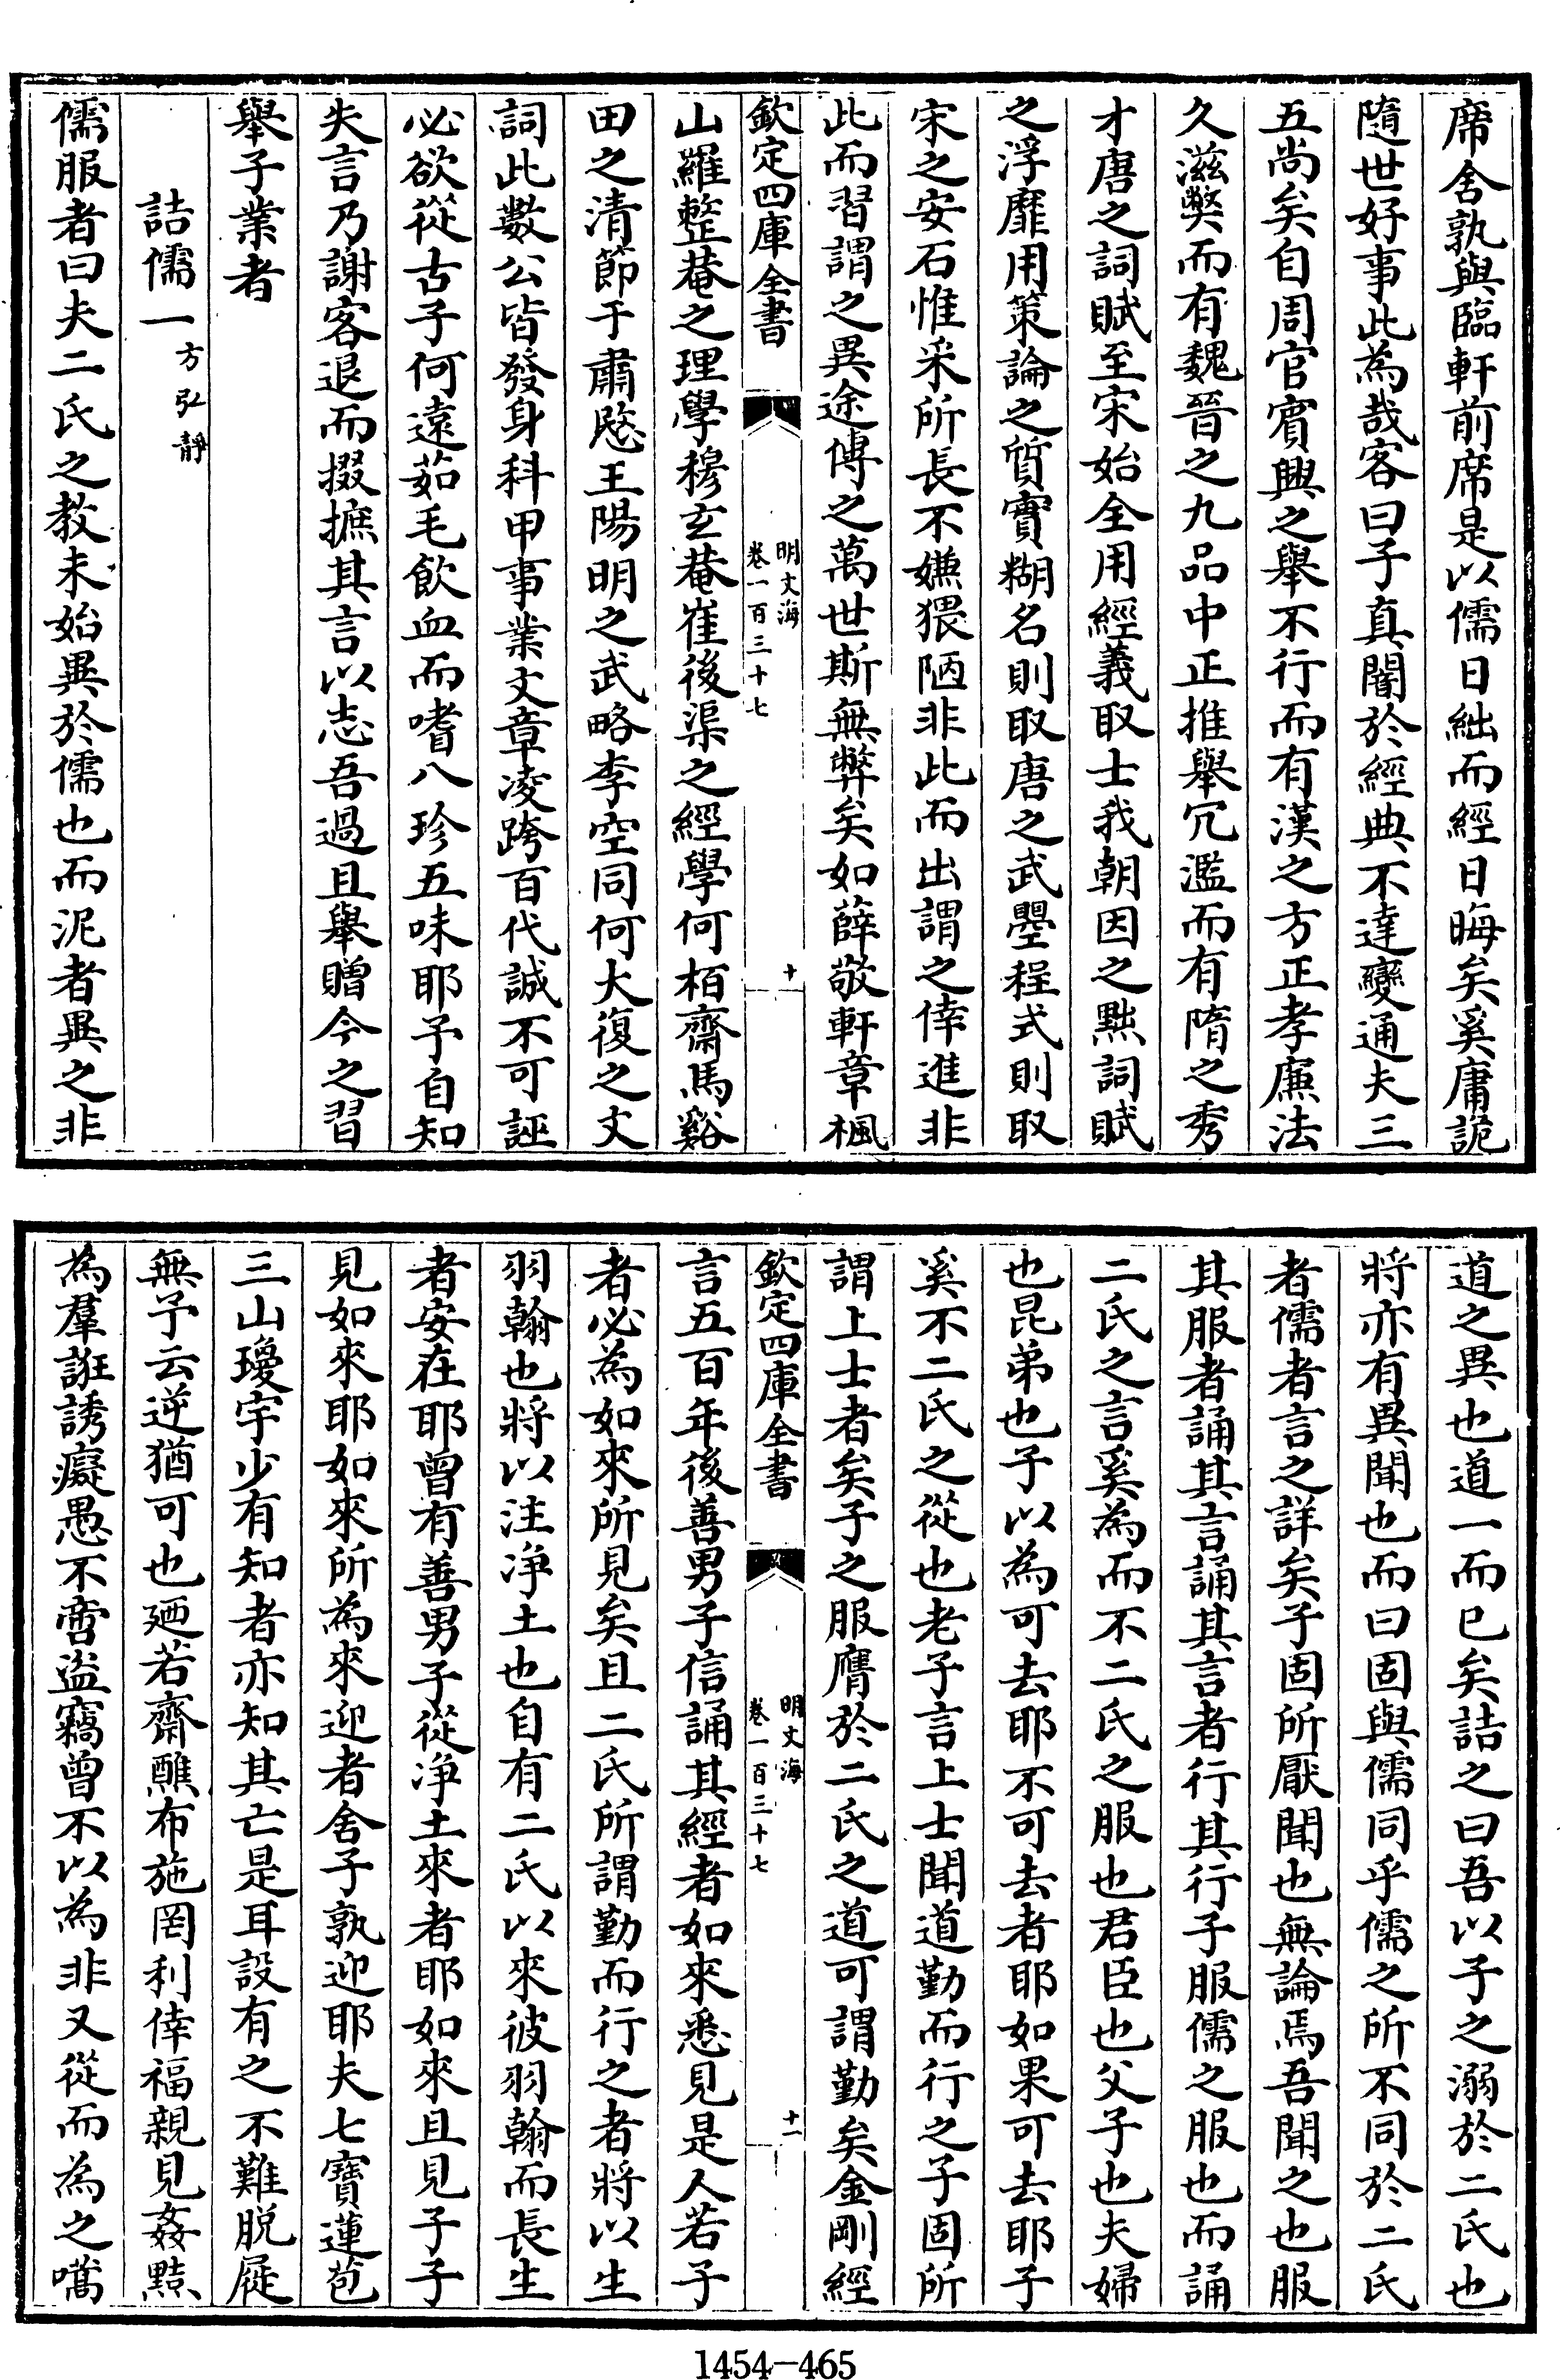 席舍孰與臨軒前席是以儒日絀而經日晦矣奚庸詭
隨世好事此為哉客曰子真闇於經典不達變通夫三
五尚矣自周官賓興之舉不行而有漢之方正孝廉法
久滋弊而有魏晉之九品中正推舉冗濫而有隋之秀
才唐之詞賦至宋始全用經義取士我朝因之黜詞賦
之浮靡用策論之質實糊名則取唐之武曌程式則取
宋之安石惟采所長不嫌猥陋非此而出謂之倖進非
此而習謂之異途傳之萬世斯無弊矣如薛敬軒章楓
欽定四庫全書
明文海
卷一百三十七
十
山羅整菴之理學穆玄菴崔後渠之經學何栢齋馬谿
田之清節于肅愍王陽明之武略李空同何大復之文
詞此數公皆發身科甲事業文章凌跨百代誠不可誣
必欲從古子何遠茹毛飲血而嗜八珍五味耶予自知
失言乃謝客退而掇摭其言以志吾過且舉贈今之習
舉子業者
詰儒一 方弘靜
儒服者曰夫二氏之教未始異於儒也而泥者異之非
道之異也道一而已矣詰之曰吾以子之溺於二氏也
將亦有異聞也而曰固與儒同乎儒之所不同於二氏
者儒者言之詳矣子固所厭聞也無論焉吾聞之也服
其服者誦其言誦其言者行其行子服儒之服也而誦
二氏之言奚為而不二氏之服也君臣也父子也夫婦
也昆弟也子以為可去耶不可去者耶如果可去耶子
奚不二氏之從也老子言上士聞道勤而行之子固所
謂上士者矣子之服膺於二氏之道可謂勤矣金剛經
欽定四庫全書
明文海
卷一百三十七
十一
言五百年後善男子信誦其經者如來悉見是人若子
者必為如來所見矣且二氏所謂勤而行之者將以生
羽翰也將以注净土也自有二氏以來彼羽翰而長生
者安在耶曾有善男子從净土來者耶如來且見子子
見如來耶如來所為來迎者舍子孰迎耶夫七寶蓮苞
三山瓊宇少有知者亦知其亡是耳設有之不難脱屣
無予云逆猶可也廼若齋醮布施罔利倖福親見姦黠
為羣誑誘癡愚不啻盜竊曾不以為非又從而為之囑